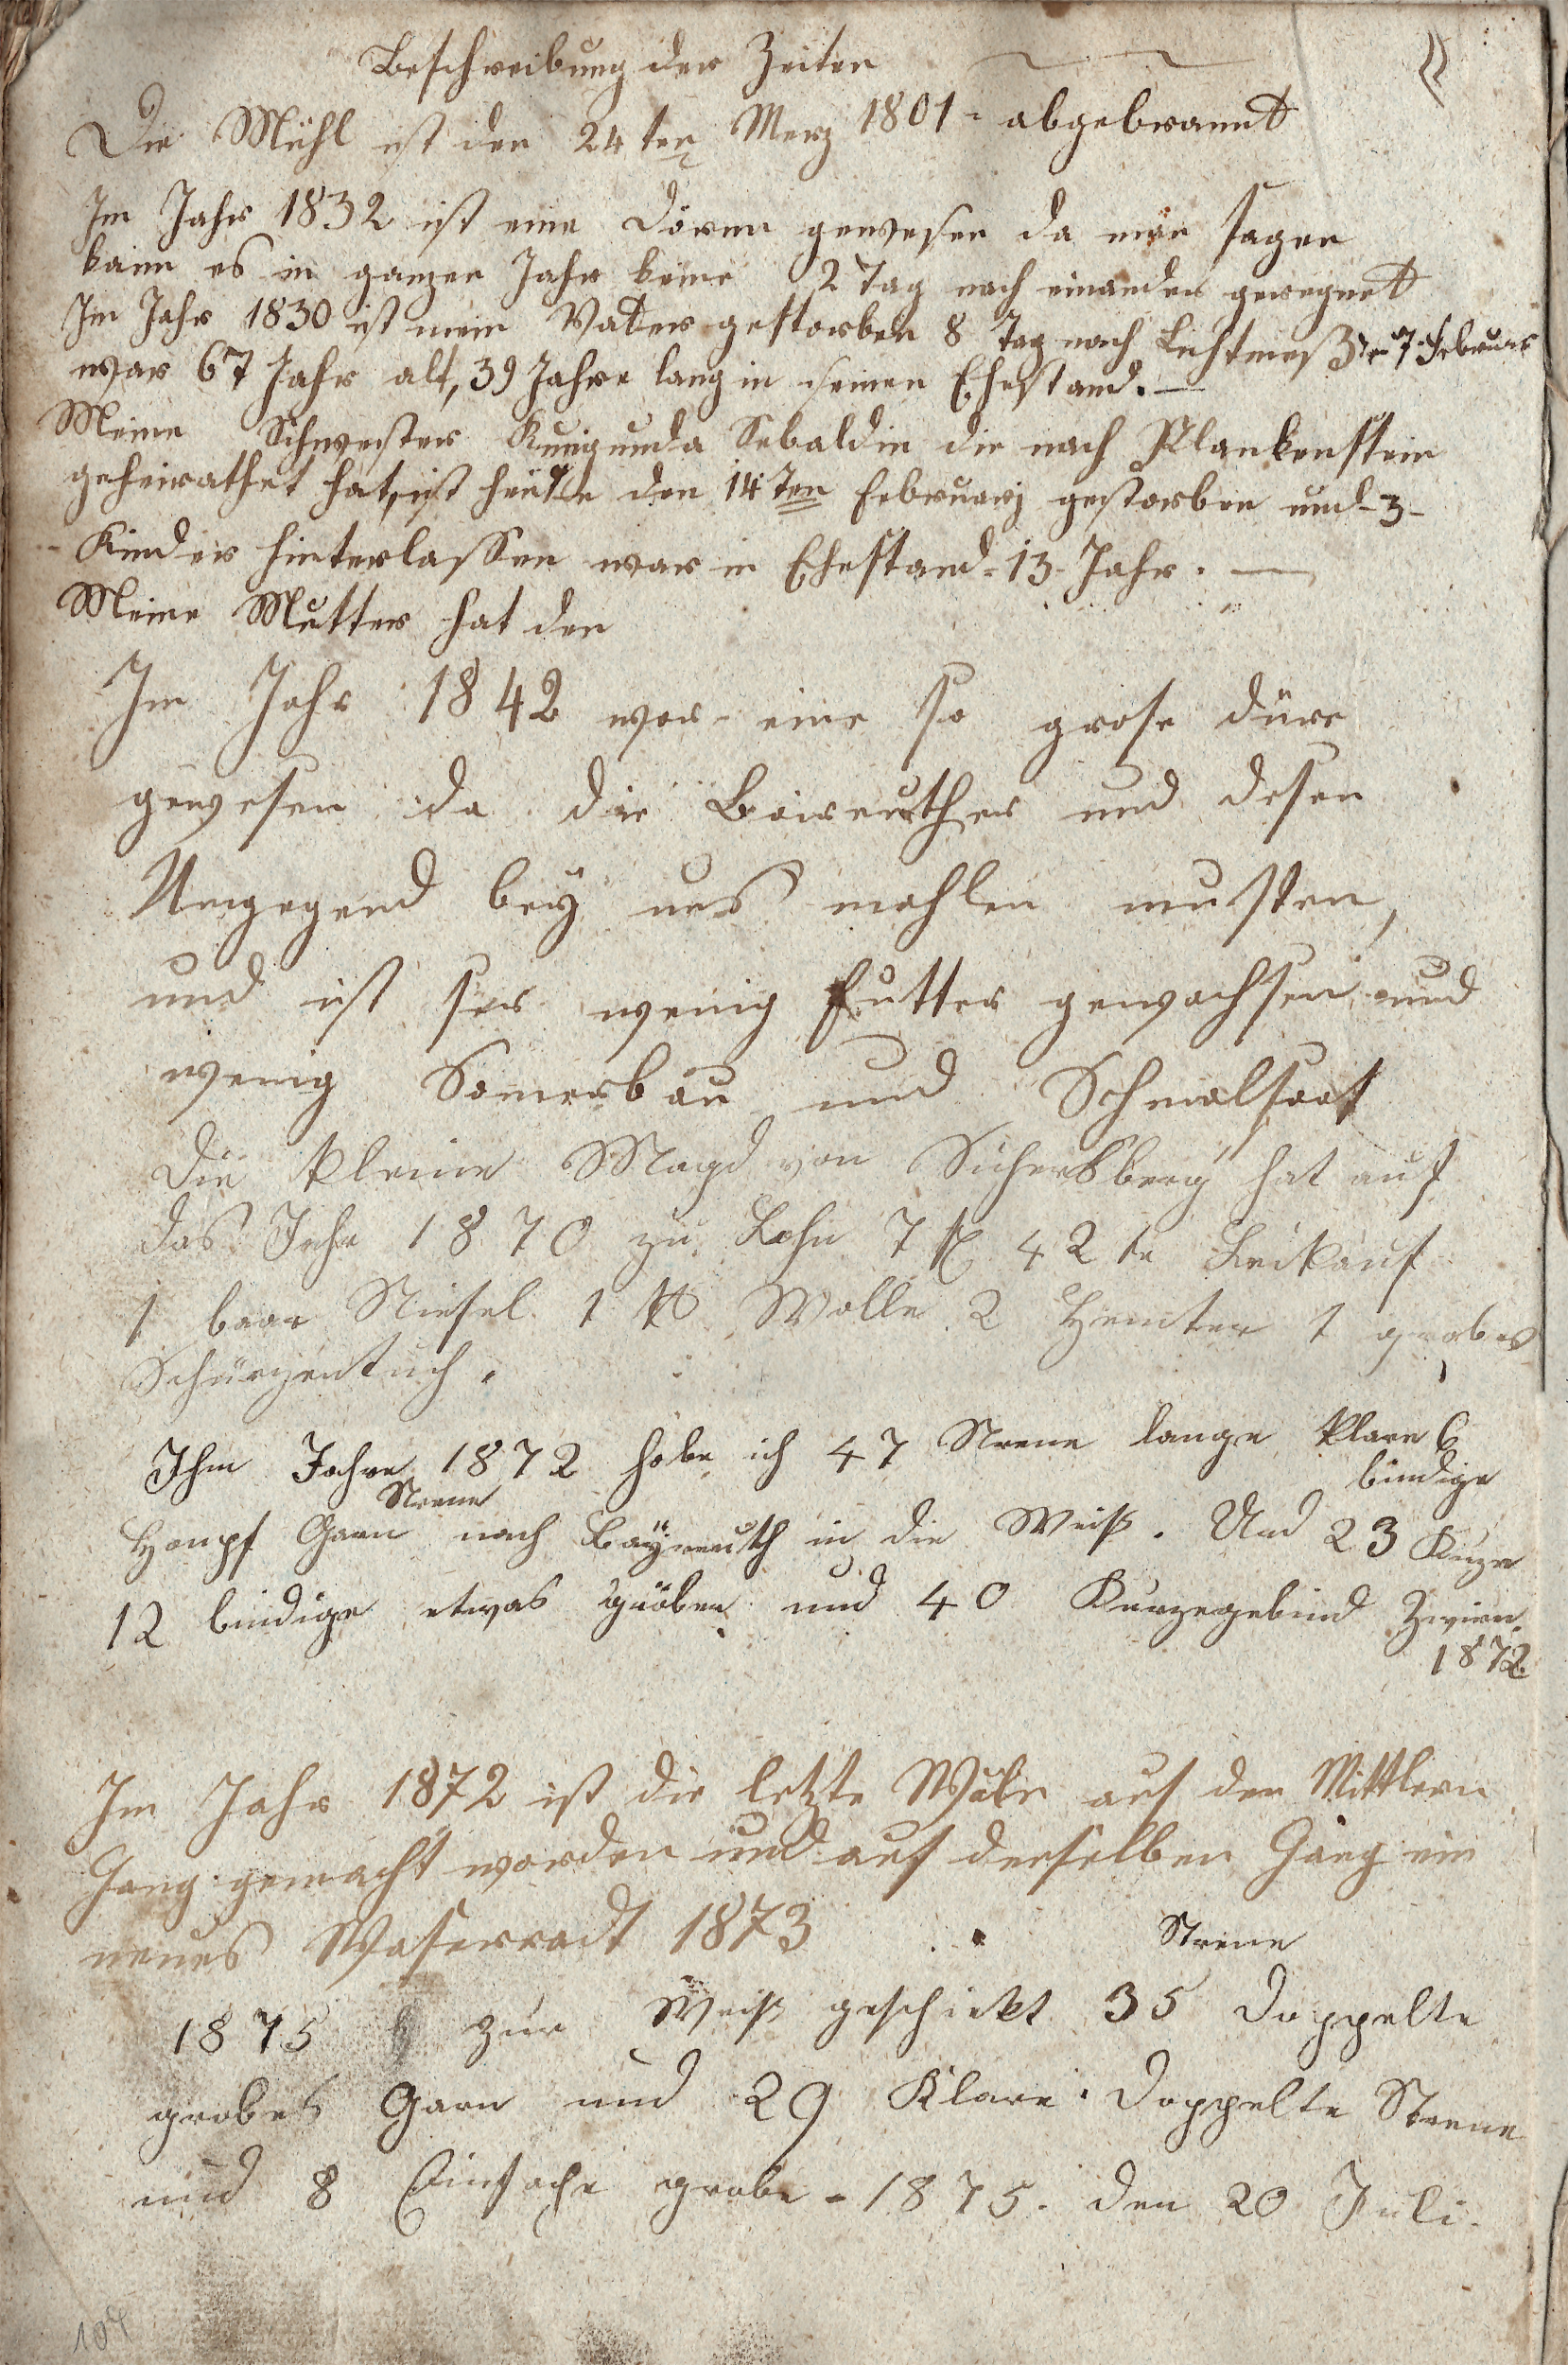 Beschreibung der Zeiten
Die Mühl ist den 24ten Merz 1801 - abgebrannt
Im Jahr 1832 ist eine Dörrn gewesen da man sagen
kann es in ganzen Jahr keine 2 Tag nach einander geregnet
Im Jahr 1830 ist mein Vatter gestorben 8 Tag nach Lichtmeß 7 Februar
war 67 Jahr alt, 39 Jahre lang in seinen Ehestand. —
Meine Schwester Kunigunda Sebaldin die nach Plankenstein
geheirathet hat, ist heute den 14ten Februarj gestorben und - 3 -
Kinder hinterlassen war in Ehestand - 13 - Jahr. —
Meine Mutter hat den
Im Jahr 1842 war - eine so grose Dürr
gewesen da die Baireuther und desen
Umgegend bey uns mahlen musten,
und ist ser wenig Futter gewachsen und
wenig Somerbau und Schmalsaat
Die kleine Magd von Sichersberg hat auf
das Jahr 1870 zu Lohn 7 fl 42 kr Leikauf
1 baar Stiefel 1 ℔ Wolle 2 Hemter 1 grobes
Schürzentuch.
Ihm Jahre 1872 habe ich 47 Strene lange klare 6
bündige
Strene
Hanpf Garn nach Bayreuth in die Weiß. Und 23 Kurze
12 bindige etwas gröber und 40 Kurzegebind Zwirn.
1872.
Im Jahr 1872 ist die letzte Wäle auf den Mittlern
Gang gemacht worden und auf denselben Gang ein
neues Waserradt 1873
Strene
1875 zur Weiß geschickt 35 Doppelte
grobes Garn und 29 Klare Doppelte Strene
und 8 Einfache grobe - 1875. den 20 Juli.
107